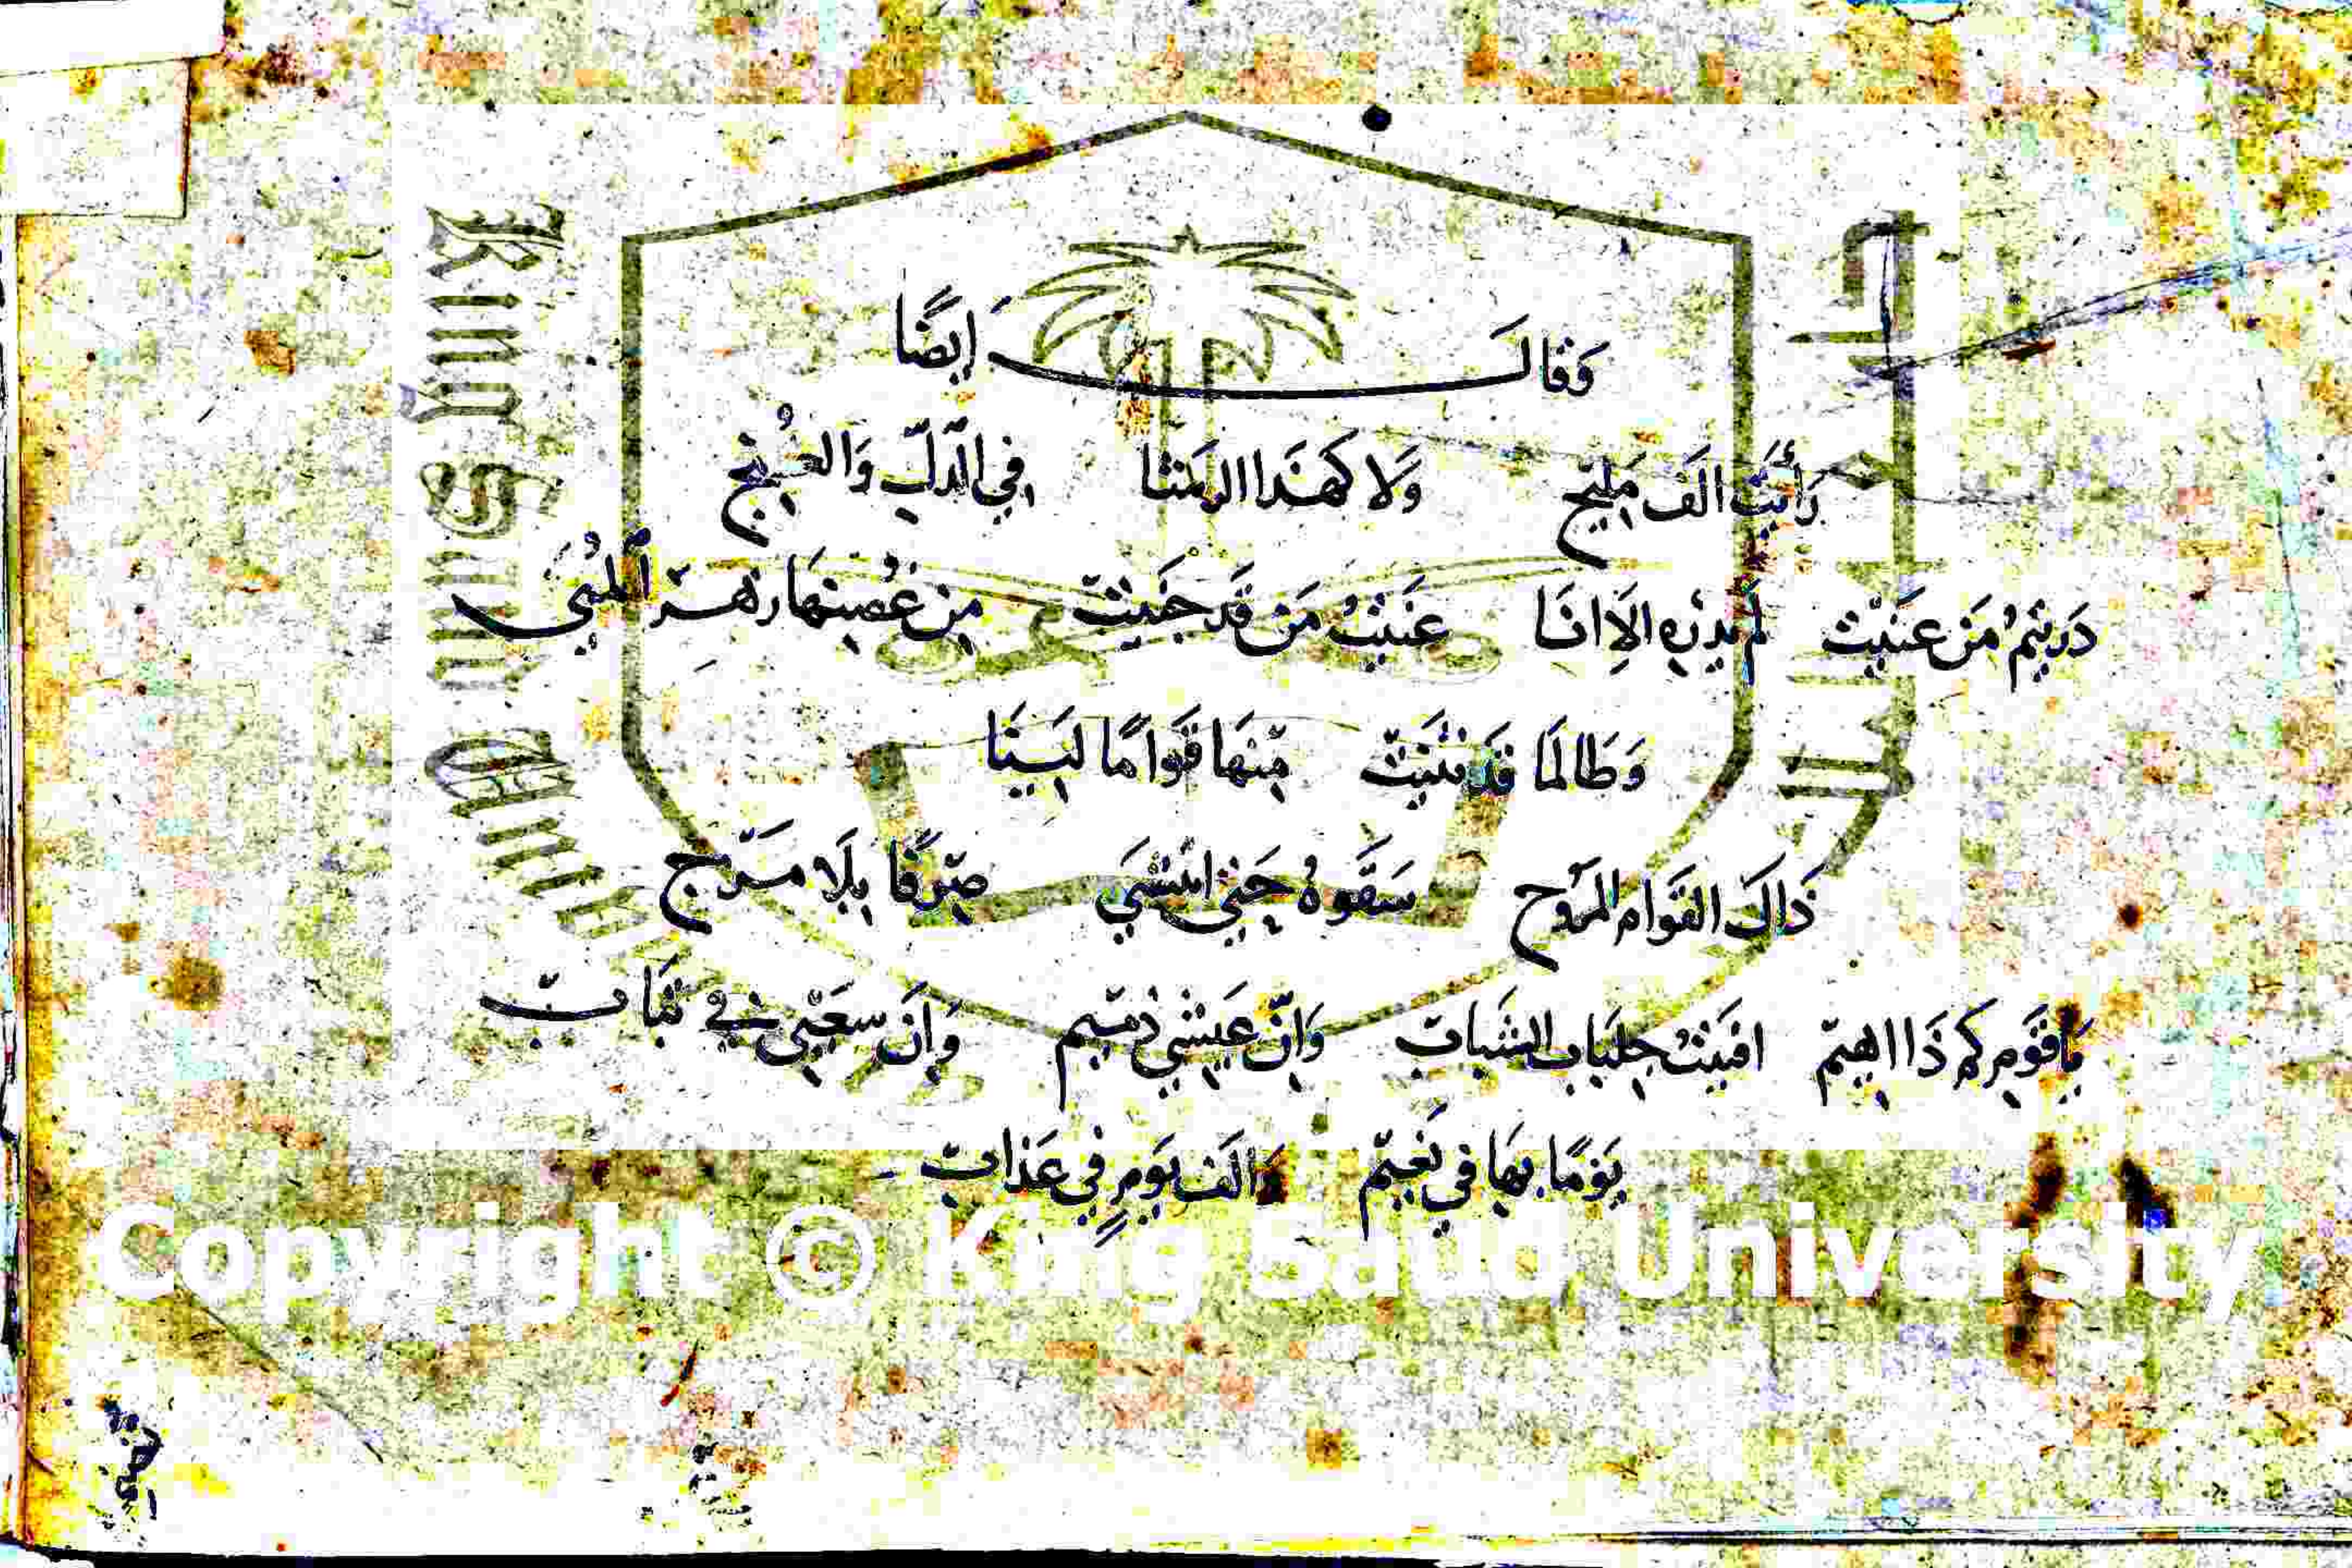 وَقَالَ اَيضًا
رَأَيَتُ الَف مَليَح وَلاَ كَهَذَا الرشا فِي الدلّ وَالغُنج
دَرَيتمُ مَن عَنَيت لَم يَدرِهِ الِاانَا عَنَيتُ مَن قَد جَنَيت مِن غُصِنهَا زهر المُنَى
وَطَالمَا قَد ثنَيَت مِنهَا قَوامًا ليَنَا
ذَاكَ القَوام المرَوح سَقَوهُ حَتي انتشَي صِرفًا بِلَا مَزج
يَاقَومِ كم ذَا اهِيم افنَيتُ جِلبَاب الشَبَاب وَاِنّ عَيشي ذميم وَاِنَ سعَيِي في تبَاب
يَومًا بِهَا في نَعيم وَالَف يَومٍ فِي عَذاب
Copyright © King Saud University
King Saud